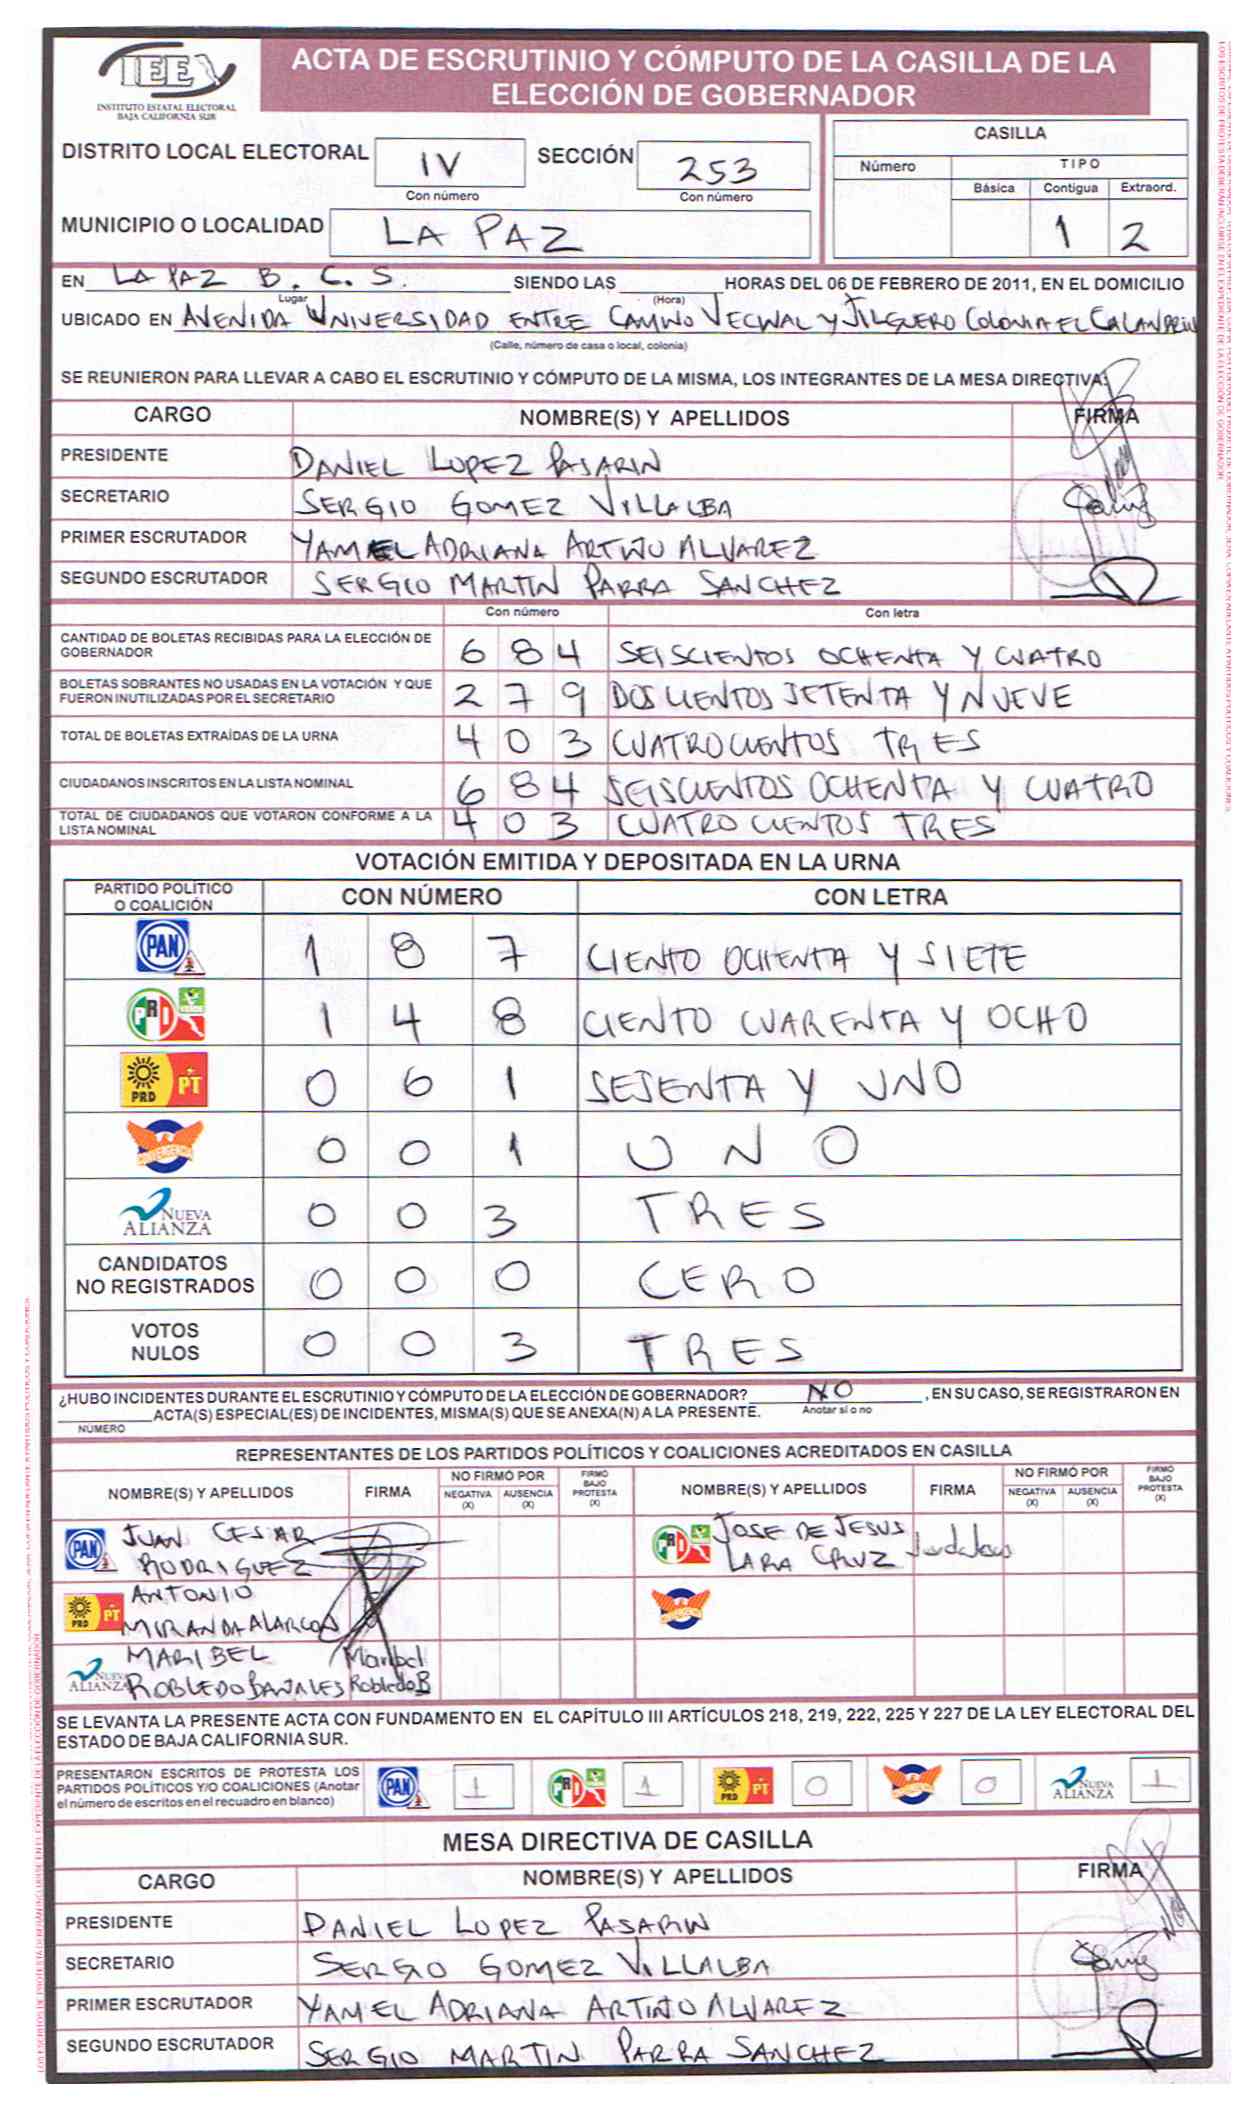 IEE
INSTITUTO ESTATAL ELECTORAL
BAJA CALIFORNIA SUR
ACTA DE ESCRUTINIO Y CÓMPUTO DE LA CASILLA DE LA
ELECCIÓN DE GOBERNADOR
DISTRITO LOCAL ELECTORAL IV SECCIÓN 253
Con número Con número
MUNICIPIO O LOCALIDAD LA PAZ
CASILLA
Número TIPO
Básica Contigua Extraord.
1 2
EN LA PAZ B. C. S. SIENDO LAS HORAS DEL 06 DE FEBRERO DE 2011, EN EL DOMICILIO
Lugar (Hora)
UBICADO EN AVENIDA UNIVERSIDAD ENTRE CAMINO VECINAL Y JILGUERO COLONIA EL CALANDRIN
(Calle, número de casa o local, colonia)
SE REUNIERON PARA LLEVAR A CABO EL ESCRUTINIO Y CÓMPUTO DE LA MISMA, LOS INTEGRANTES DE LA MESA DIRECTIVA:
CARGO NOMBRE(S) Y APELLIDOS FIRMA
PRESIDENTE DANIEL LOPEZ PASARIN
SECRETARIO SERGIO GOMEZ VILLALBA
PRIMER ESCRUTADOR YAMEL ADRIANA ARTIÑO ALVAREZ
SEGUNDO ESCRUTADOR SERGIO MARTIN PARRA SANCHEZ
Con número Con letra
CANTIDAD DE BOLETAS RECIBIDAS PARA LA ELECCIÓN DE
GOBERNADOR 684 SEISCIENTOS OCHENTA Y CUATRO
BOLETAS SOBRANTES NO USADAS EN LA VOTACIÓN Y QUE
FUERON INUTILIZADAS POR EL SECRETARIO 279 DOSCIENTOS SETENTA Y NUEVE
TOTAL DE BOLETAS EXTRAÍDAS DE LA URNA 403 CUATROCIENTOS TRES
CIUDADANOS INSCRITOS EN LA LISTA NOMINAL 684 SEISCIENTOS OCHENTA Y CUATRO
TOTAL DE CIUDADANOS QUE VOTARON CONFORME A LA
LISTA NOMINAL 403 CUATROCIENTOS TRES
VOTACIÓN EMITIDA Y DEPOSITADA EN LA URNA
PARTIDO POLÍTICO
O COALICIÓN CON NÚMERO CON LETRA
PAN 1 8 7 CIENTO OCHENTA Y SIETE
PRI 1 4 8 CIENTO CUARENTA Y OCHO
PRD PT 0 6 1 SESENTA Y UNO
CONVERGENCIA 0 0 1 UNO
NUEVA
ALIANZA 0 0 3 TRES
CANDIDATOS
NO REGISTRADOS 0 0 0 CERO
VOTOS
NULOS 0 0 3 TRES
¿HUBO INCIDENTES DURANTE EL ESCRUTINIO Y CÓMPUTO DE LA ELECCIÓN DE GOBERNADOR? NO , EN SU CASO, SE REGISTRARON EN
ACTA(S) ESPECIAL(ES) DE INCIDENTES, MISMA(S) QUE SE ANEXA(N) A LA PRESENTE. Anotar si o no
NÚMERO
REPRESENTANTES DE LOS PARTIDOS POLÍTICOS Y COALICIONES ACREDITADOS EN CASILLA
NOMBRE(S) Y APELLIDOS FIRMA NO FIRMÓ POR NEGATIVA (X) AUSENCIA (X) FIRMÓ BAJO PROTESTA (X) NOMBRE(S) Y APELLIDOS FIRMA NO FIRMÓ POR NEGATIVA (X) AUSENCIA (X) FIRMÓ BAJO PROTESTA (X)
PAN JUAN CESAR
RODRIGUEZ
PRI JOSE DE JESUS
LARA CRUZ
PRD PT ANTONIO
MIRANDA ALARCON
CONVERGENCIA
NUEVA ALIANZA MARIBEL
ROBLEDO BANALES
Maribel
Robledo B
SE LEVANTA LA PRESENTE ACTA CON FUNDAMENTO EN EL CAPÍTULO III ARTÍCULOS 218, 219, 222, 225 Y 227 DE LA LEY ELECTORAL DEL
ESTADO DE BAJA CALIFORNIA SUR.
PRESENTARON ESCRITOS DE PROTESTA LOS
PARTIDOS POLÍTICOS Y/O COALICIONES (Anotar
el número de escritos en el recuadro en blanco)
PAN 1 PRI 1 PRD PT 0 CONVERGENCIA 0 NUEVA ALIANZA 1
MESA DIRECTIVA DE CASILLA
CARGO NOMBRE(S) Y APELLIDOS FIRMA
PRESIDENTE DANIEL LOPEZ PASARIN
SECRETARIO SERGIO GOMEZ VILLALBA
PRIMER ESCRUTADOR YAMEL ADRIANA ARTIÑO ALVAREZ
SEGUNDO ESCRUTADOR SERGIO MARTIN PARRA SANCHEZ